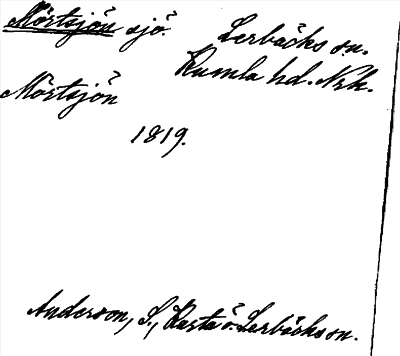 Mörtsjön sjö. Lerbäcks sn.
Kumla hd. Nrk.
Mörtsjön
1819.
Anderson, S., Karta ö. Lerbäcks sn.